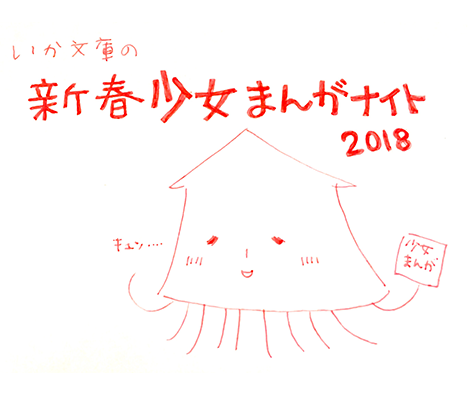 いか文庫の
新春少女まんがナイト
2018
キュン....
少女
まんが